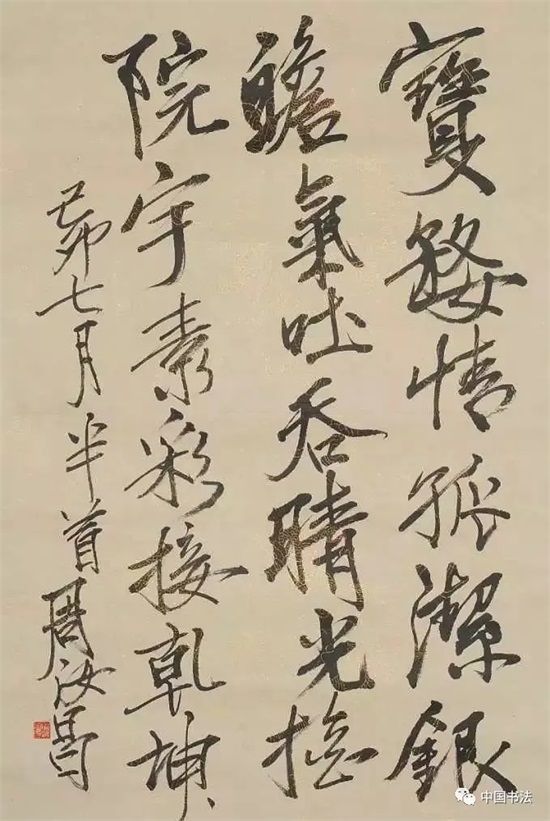 寶婺情孤潔銀
蟾氣吐吞晴光摇
院宇素彩接乾坤、
己卯七月半首周汝昌
中国书法